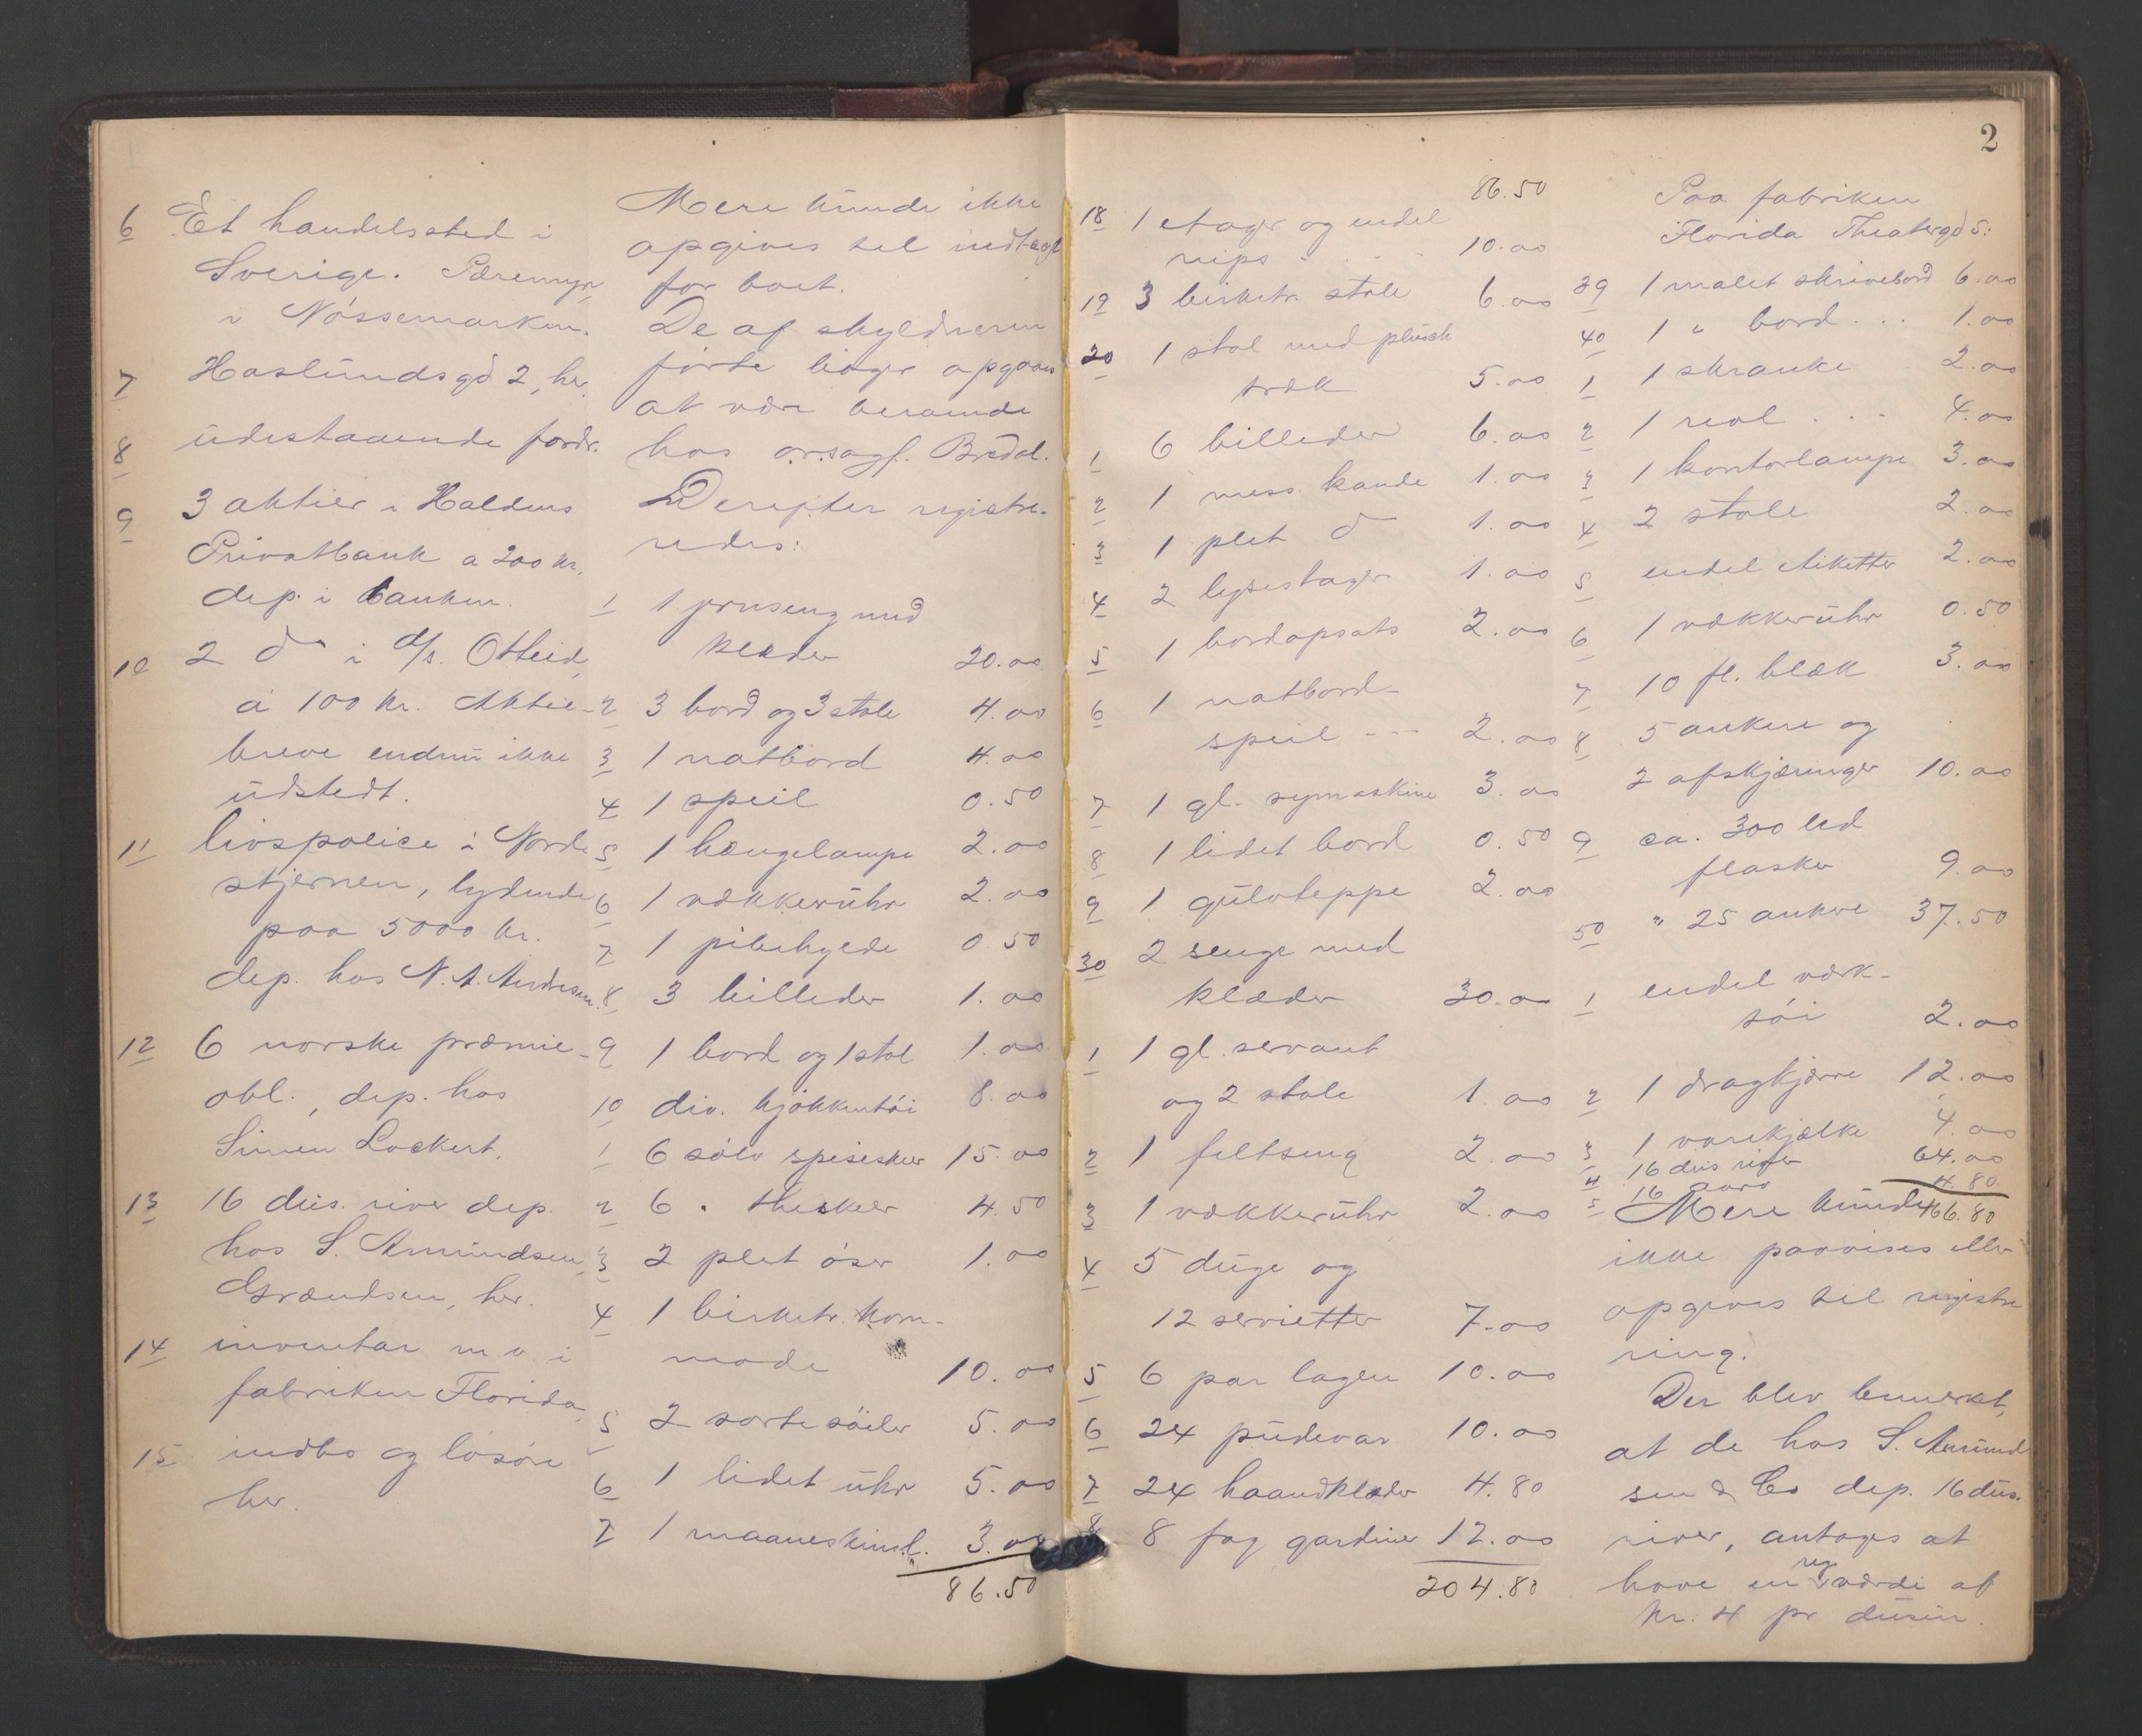 6 Et handelssted i
Sverige. Pæremyr,
i Nössemarken.
7 Haslundsgd 2, her.
8 udestaaende fordr.
9 3 aktier i Haldens
Privatbank a 200 kr,
dep. i banken.
10 2 do i A/s. Otteid,
á 100 kr. Aktie-
breve endnu ikke
udstedt.
11 livspolice i Nord-
stjernen, lydende
paa 5000 kr.
dep. hos N. A. Andresen
12 6 norske præmie-
obl., dep. hos
Simen Lockert.
13 16 dus. river dep.
hos S. Amundsen,
Grændsen, her.
14 inventar m.v. i
fabriken Florida,
15 indbo og lösöre
her.
Mere kunde ikke
opgives til indtægt
for boet.
De af skyldneren
førte bøger opgaves
at være beroende
hos o.r.sagf. Brødal.
Derefter registre-
redes:
1 1 jernseng med
klæder 20.00
2 3 bord og 3 stole 4.00
3 1 natbord 4.00
4 1 speil 0.50
5 1 hængelampe 2.00
6 1 vækkeruhr 2.00
7 1 pibehylde 0.50
8 3 billeder 1.00
9 1 bord og 1 stol 1.00
10 div. kjökkentöi 8.00
1 6 sölv spiseskeer 15.00
2 6 " theskeer 4.50
3 2 plet öser 1.00
4 1 birketr. kom-
mode 10.00
5 2 sorte söiler 5.00
6 1 lidet uhr 5.00
7 1 maaneskinsl. 3.00
86.50
2
86.50
18 1 etager og endel
nips . . . 10.00
19 3 birketr. stole 6.00
20 1 stol med plusch
træk 5.00
1 6 billeder 6.00
2 1 mess. kande 1.00
3 1 plet do 1.00
4 2 lysestager 1.00
5 1 bordopsats 2.00
6 1 natbord-
speil --- 2.00
7 1 gl. symaskine 3.00
8 1 lidet bord 0.50
9 1 gulvteppe 2.00
30 2 senge med
klæder 30.00
1 1 gl. servant
og 2 stole 1.00
2 1 feltseng 2.00
3 1 vækkeruhr 2.00
4 5 duge og
12 servietter 7.00
5 6 par lagen 10.00
6 24 pudevar 10.00
7 24 haandklæder 4.80
8 8 fag gardiner 12.00
204.80
Paa fabriken
Florida Theatergd 5:
39 1 malet skrivebord 6.00
40 1 " bord . . . 1.00
1 1 skranke 2.00
2 1 reol . . . 4.00
3 1 kontorlampe 3.00
4 2 stole 2.00
5 endel etiketter 2.00
6 1 vækkeruhr 0.50
7 10 fl. blæk 3.00
8 5 ankere og
2 afskjæringer 10.00
9 ca. 300 led
flasker 9.00
50 " 25 ankere 37.50
1 endel værk-
töi 2.00
2 1 dragkjærre 12.00
3 1 varekjælke 4.00
4 16 dus river 64.00
5 16 4.80
466.80
Mere kunde
ikke paavises eller
opgives til registre
ring.
Der blev bemerket,
at de hos S. Amund
sen & Co dep. 16 dus.
river, antages at
have en reg værdi af
kr. 4 pr dusin.